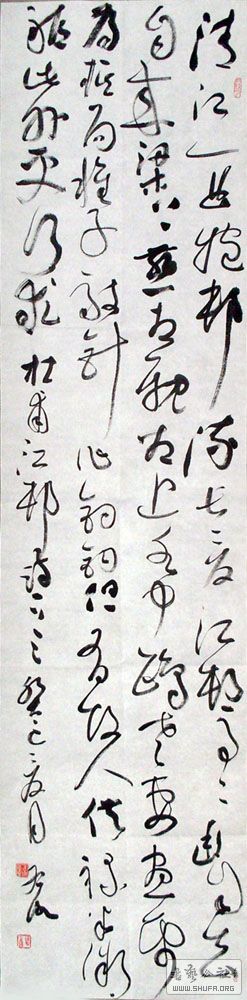 清江一曲抱邨流長夏江村事〻幽自去
自來梁上燕相親相近水中鷗老妻畫紙
為棋局稚子敲針作釣鉤但有故人供祿米微
軀此外更何求杜甫江邨詩一首癸巳夏月
書藝公社
WWW.SHUFA.ORG